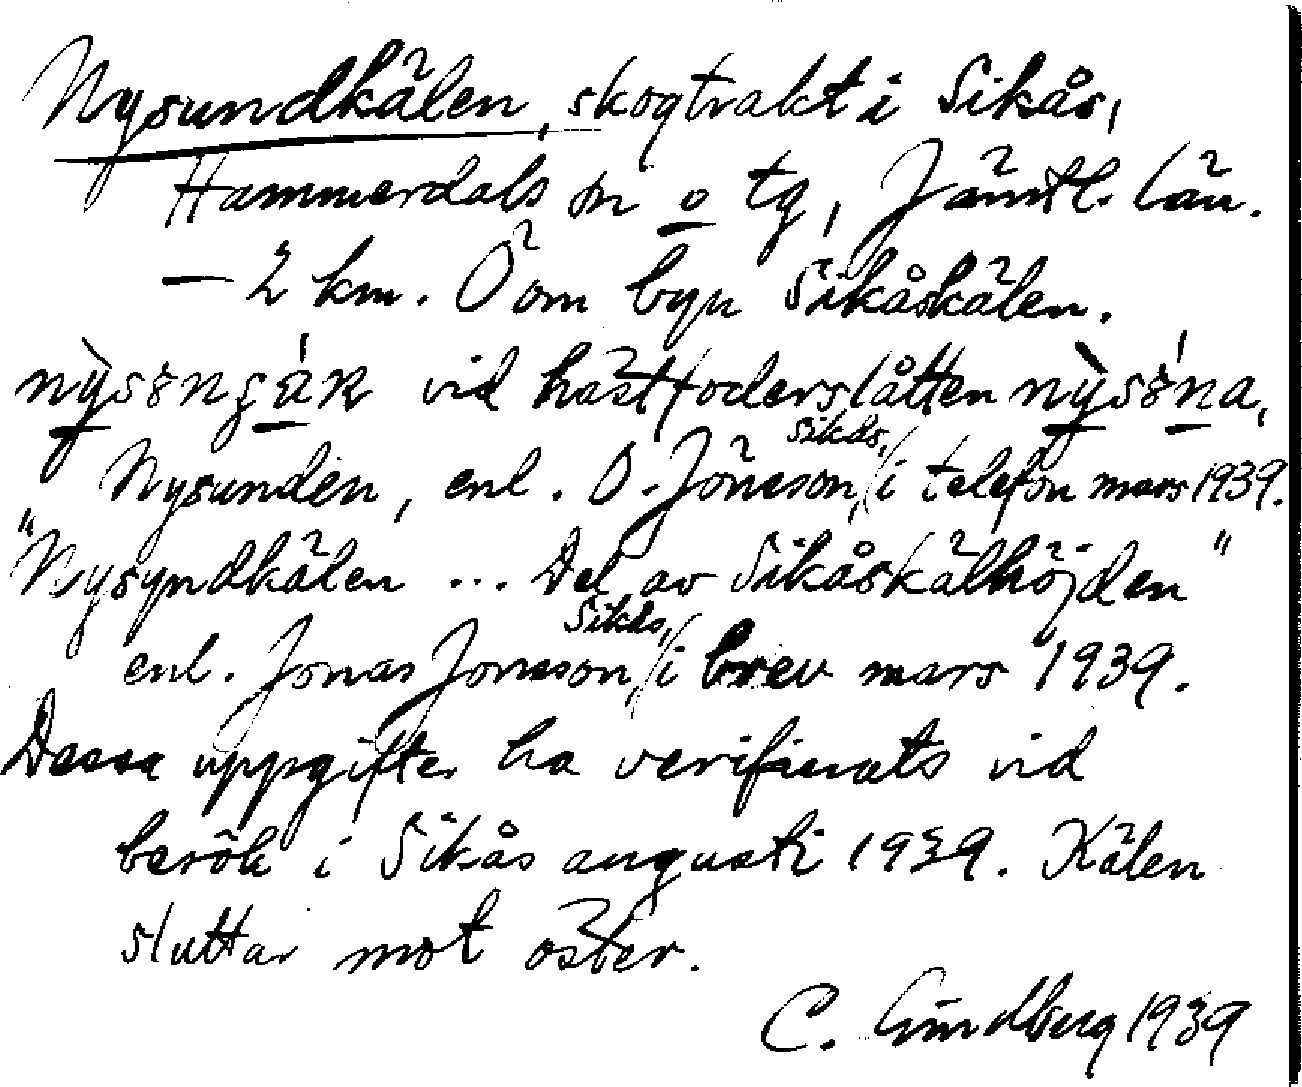 Nysundkälen, skogtrakt i Sikås,
Hammerdals sn o tg, Jämtl. län.
— 2 km. Ö om byn Sikåskälen.
vid hästfoderslåtten
Nysunden, enl. O. Jönsson, Sikås, i telefon mars 1939.
"Nysyndkälen ... Del av Sikåskälhöjden"
enl. Jonas Jonsson, Sikås, i brev mars 1939.
Dessa uppgifter ha verifierats vid
besök i Sikås augusti 1939. Kälen
sluttar mot öster.
C. Lindberg 1939